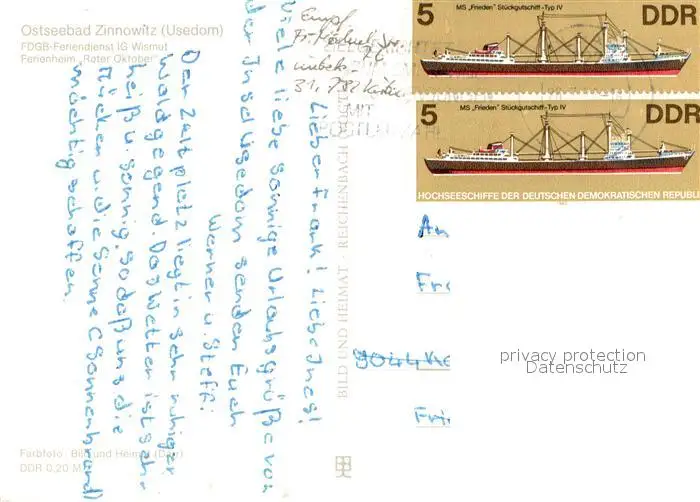 Ostseebad Zinnowitz (Usedom)
FDGB-Feriendienst IG Wismut
Ferienheim „Roter Oktober"
Lieber Frank! Liebe Ines!
Viele liebe sonnige Urlaubsgrüße von
der Insel Usedom senden Euch
Werner u. Steffi.
Der Zeltplatz liegt in sehr ruhiger
Waldgegend. Das Wetter ist sehr
heiß u. sonnig, sodaß uns die
Mücken u. die Sonne (Sonnenbrand)
mächtig schaffen.
Farbfoto: Bild und Heimat
DDR 0,20 M
BILD UND HEIMAT · REICHENBACH
Empf
MIT
5 MS „Frieden" Stückgutschiff-Typ IV DDR
5 MS „Frieden" Stückgutschiff-Typ IV DDR
HOCHSEESCHIFFE DER DEUTSCHEN DEMOKRATISCHEN REPUBL
An
Fr
9044 K
Fri
privacy protection
Datenschutz